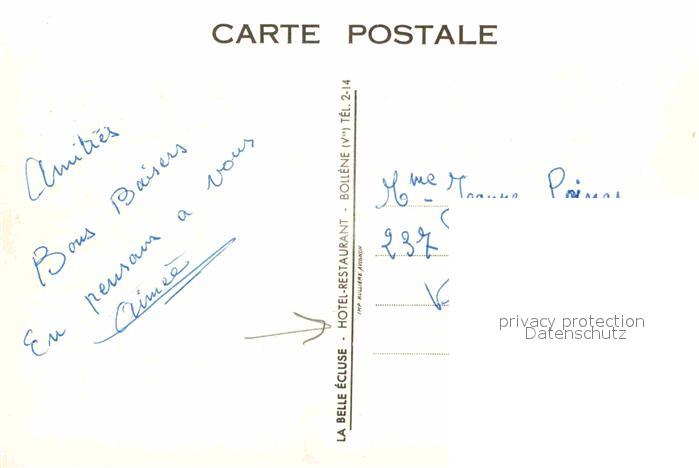 CARTE POSTALE
Amitiés
Bons Baisers
En pensant a vous
Aimée
LA BELLE ÉCLUSE - HOTEL-RESTAURANT - BOLLÈNE (Vse) TÉL. 2-14
IMP. RULLIÈRE, AVIGNON
Mme Jeanne
237
privacy protection
Datenschutz